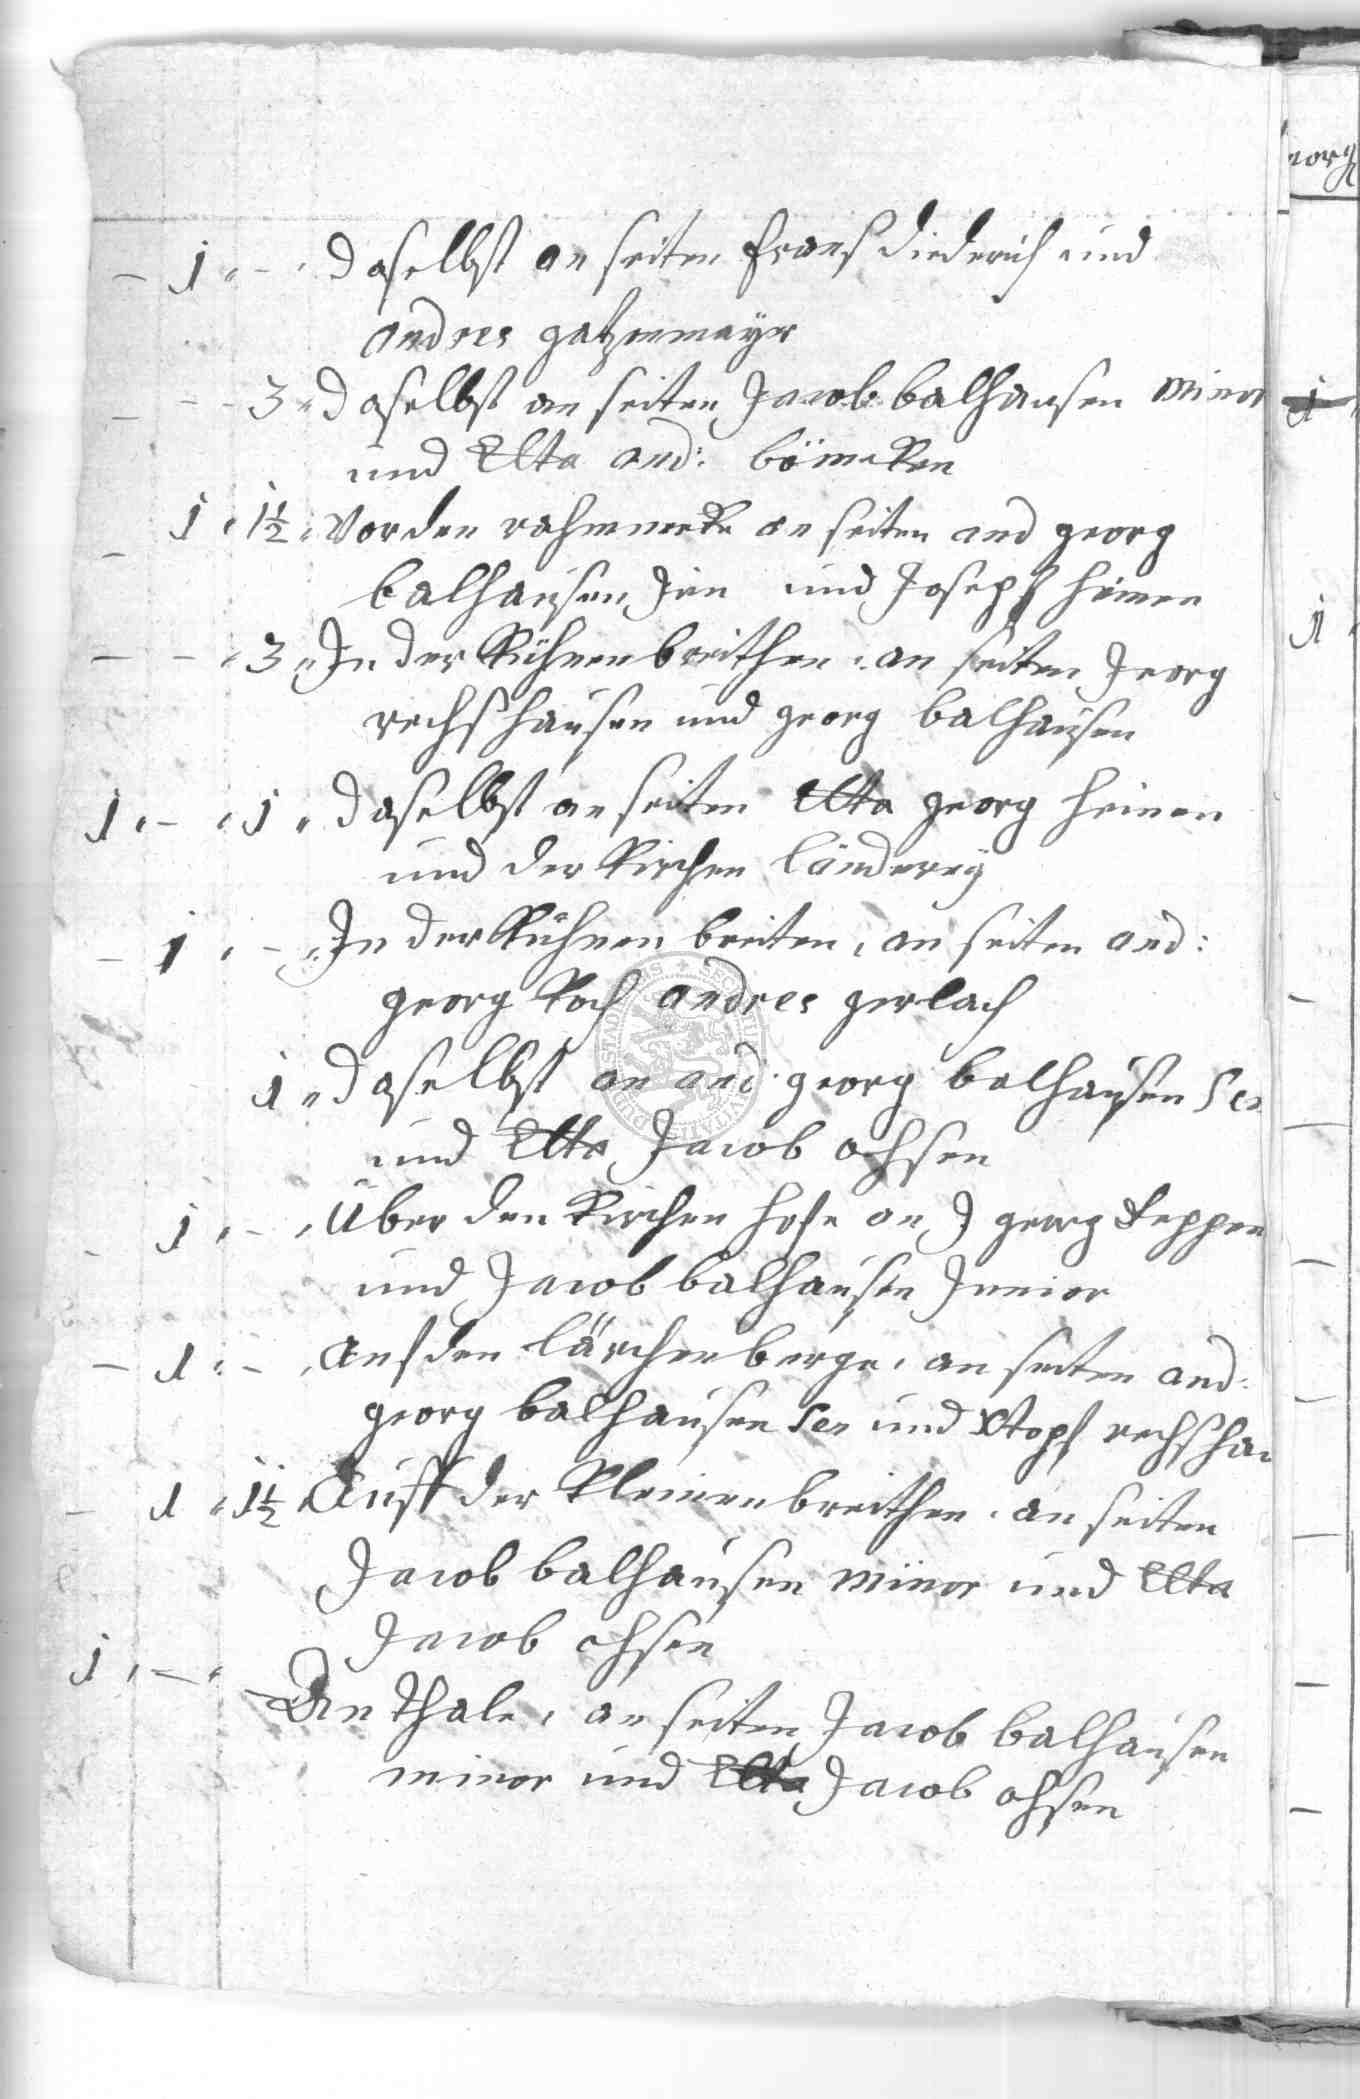 – 1 " – " daselbst an seiten Frans diederich und
andres gatzemeyer
– – – 3 " daselbst an seiten Jacob balhausen minor
und Elta and: bömeken
– 1 " 1½ " Vor den an seiten and georg
balhausen Jun und Joseph heinen
– – " 3 " In der Kühnenbreithen, an seiten Jeorg
rechshausen und georg balhausen
1 " – " 1 " daselbst an seiten Elta georg heinen
und der Kirchen länderey
– 1 " – " In der Kühnen breiten, an seiten and:
georg Koch andres gerlach
1 " daselbst an and: georg balhausen Sen
und Elta Jacob ohsen
– 1 " – " Über den Kirchen hofe an J georg Keppen
und Jacob balhausen Junior
– 1 " – " Auf den lärchenberge, an seiten and:
georg balhausen Sen und Xtoph rechshau
– 1 " 1½ " Auff der Kleinenbreithen, an seiten
Jacob balhausen minor und Elta
Jacob ohsen
1 " – "
An thale, an seiten Jacob balhausen
minor und Elta Jacob ohsen
morg
1
1